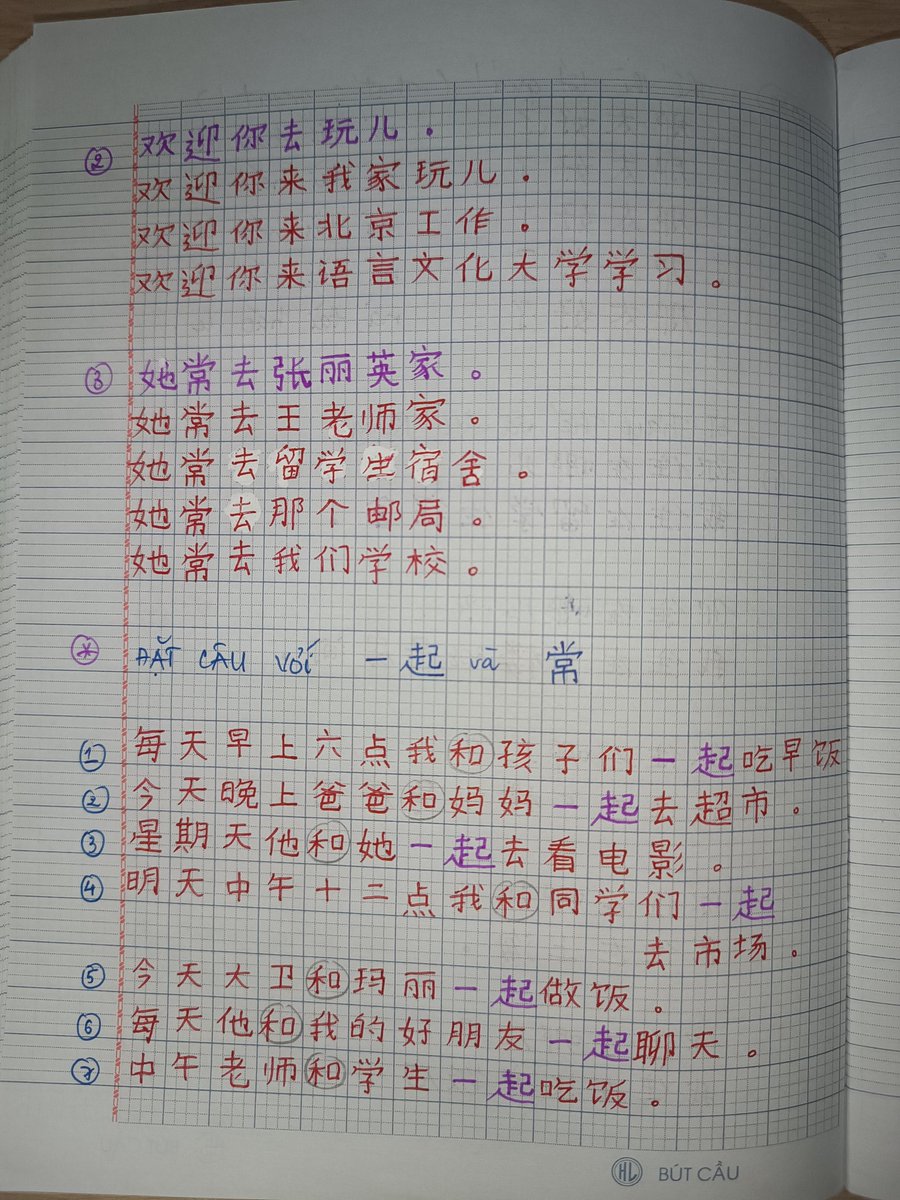 ② 欢迎你去玩儿.
欢迎你来我家玩儿.
欢迎你来北京工作。
欢迎你来语言文化大学学习。
③ 她常去张丽英家。
她常去王老师家。
她常去留学生宿舍。
她常去那个邮局。
她常去我们学校。
* ĐẶT CÂU VỚI 一起 và 常
① 每天早上六点我和孩子们一起吃早饭
② 今天晚上爸爸和妈妈一起去超市。
③ 星期天他和她一起去看电影。
④ 明天中午十二点我和同学们一起
去市场.
⑤ 今天大卫和玛丽一起做饭。
⑥ 每天他和我的好朋友一起聊天。
⑦ 中午老师和学生一起吃饭。
HL BÚT CẦU